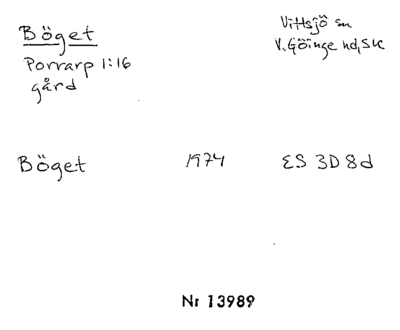 Böget
Porrarp 1:16
gård
Vittsjö sn
V. Göinge hd, Sk
Böget 1974 ES 3D 8d
Nr 13989